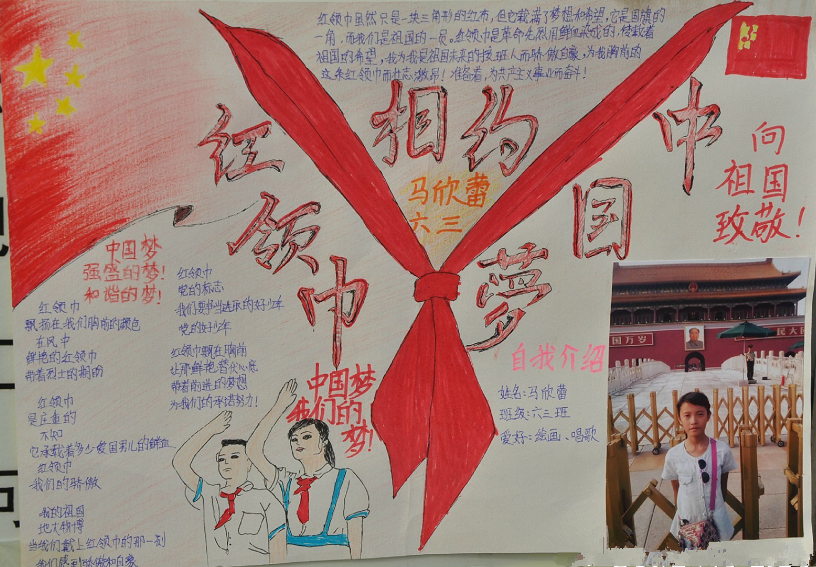 红领巾虽然只是一块三角形的红布，但它载满了梦想和希望，它是国旗的
一角，而我们是祖国的一员。红领巾是革命先烈用鲜血染成的，传载着
祖国的希望，我为我是祖国未来的接班人而骄傲自豪，为我胸前的
这条红领巾而壮志激昂！准备着，为共产主义事业而奋斗！
红领巾
相约
中国
夢
马欣蕾
六三
向
祖国
致敬！
中国梦
强盛的梦！
和谐的梦！
红领巾
飘扬在我们胸前的颜色
在风中
鲜艳的红领巾
带着烈士的期盼
红领巾
是庄重的
不知
它承载着多少爱国男儿的鲜血
红领巾
我们的骄傲
我的祖国
地大物博
当我们戴上红领巾的那一刻
我们感到骄傲和自豪
红领巾
党的标志
我们要争当进取的好少年
党的好少年
红领巾飘在胸前
让那鲜艳
带着前进的梦想
为我们的承诺努力！
中国梦
我们的
梦！
自我介绍
姓名：马欣蕾
班级：六三班
爱好：绘画、唱歌
国万岁